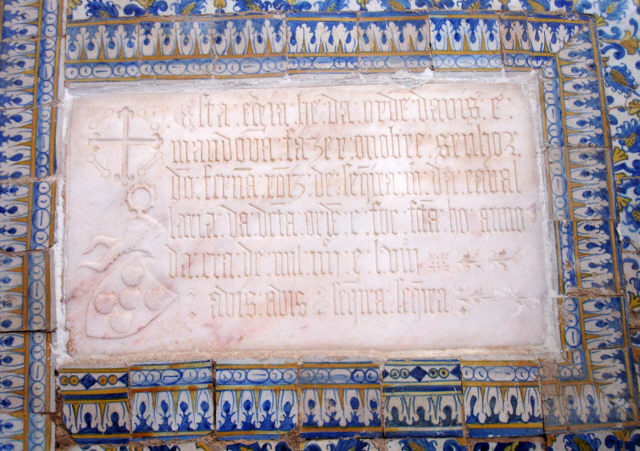 esta : egia : he : da : orde : davis : e :
mandova : fazer : o nobre : senhor :
do : ferna : roiz : de : seqira : m : da : caval
laria : da : dita : orde : e : foe : fta : no : anno
da : era : de : mil : iiij : e :
: avis : avis : seqira : seqira :